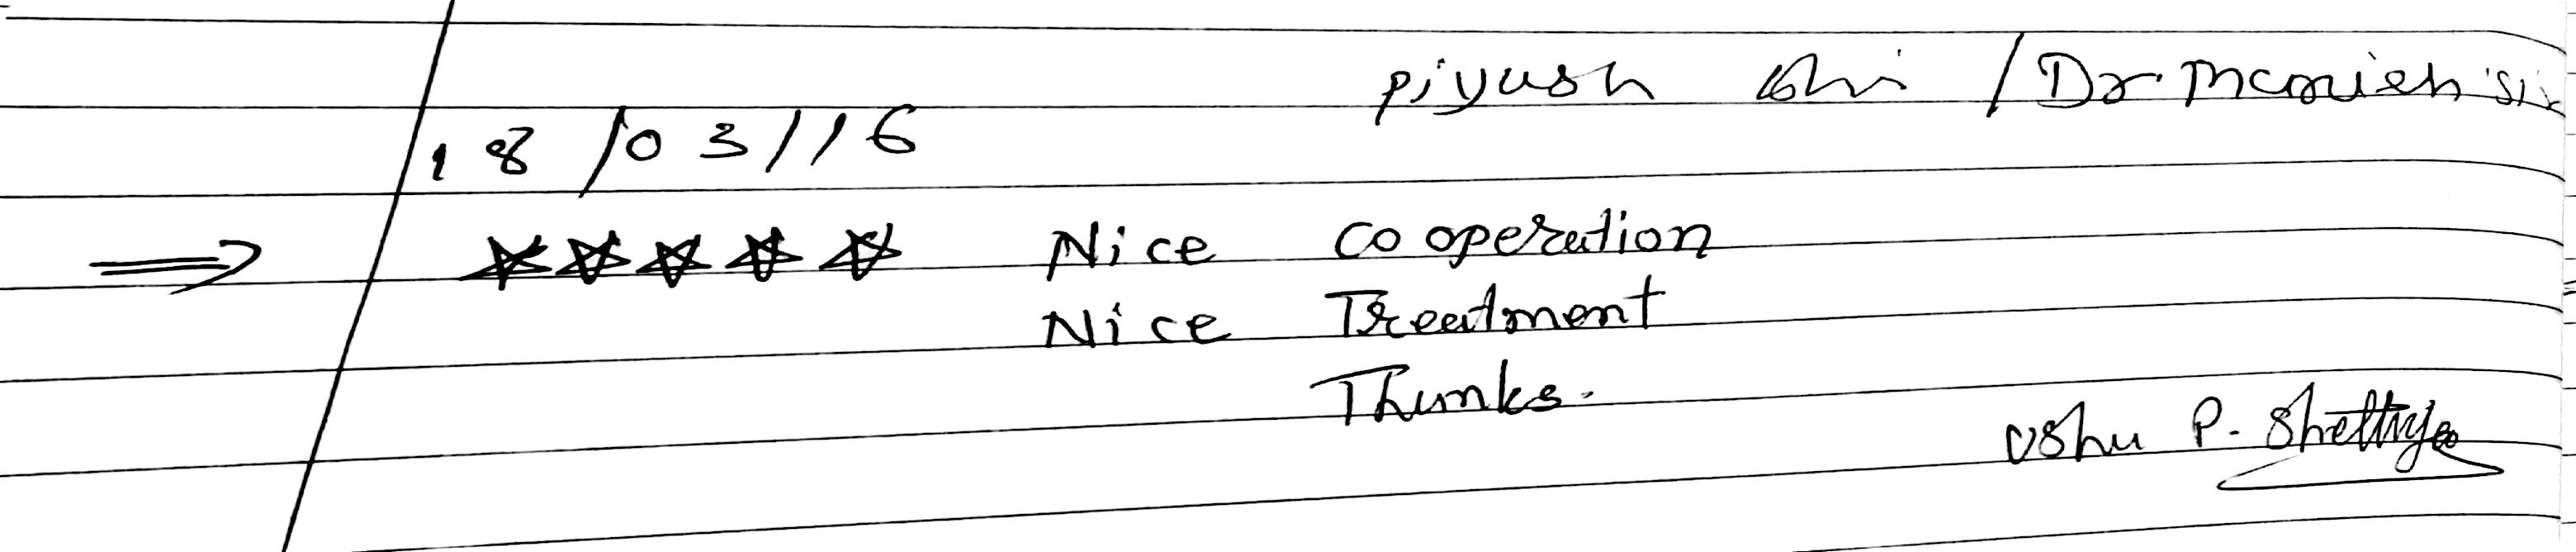 piyush bhi / Dr. manish sir
18/03/16
⇒ ★★★★★ Nice Cooperation
Nice Treatment
Thanks.
Usha P.